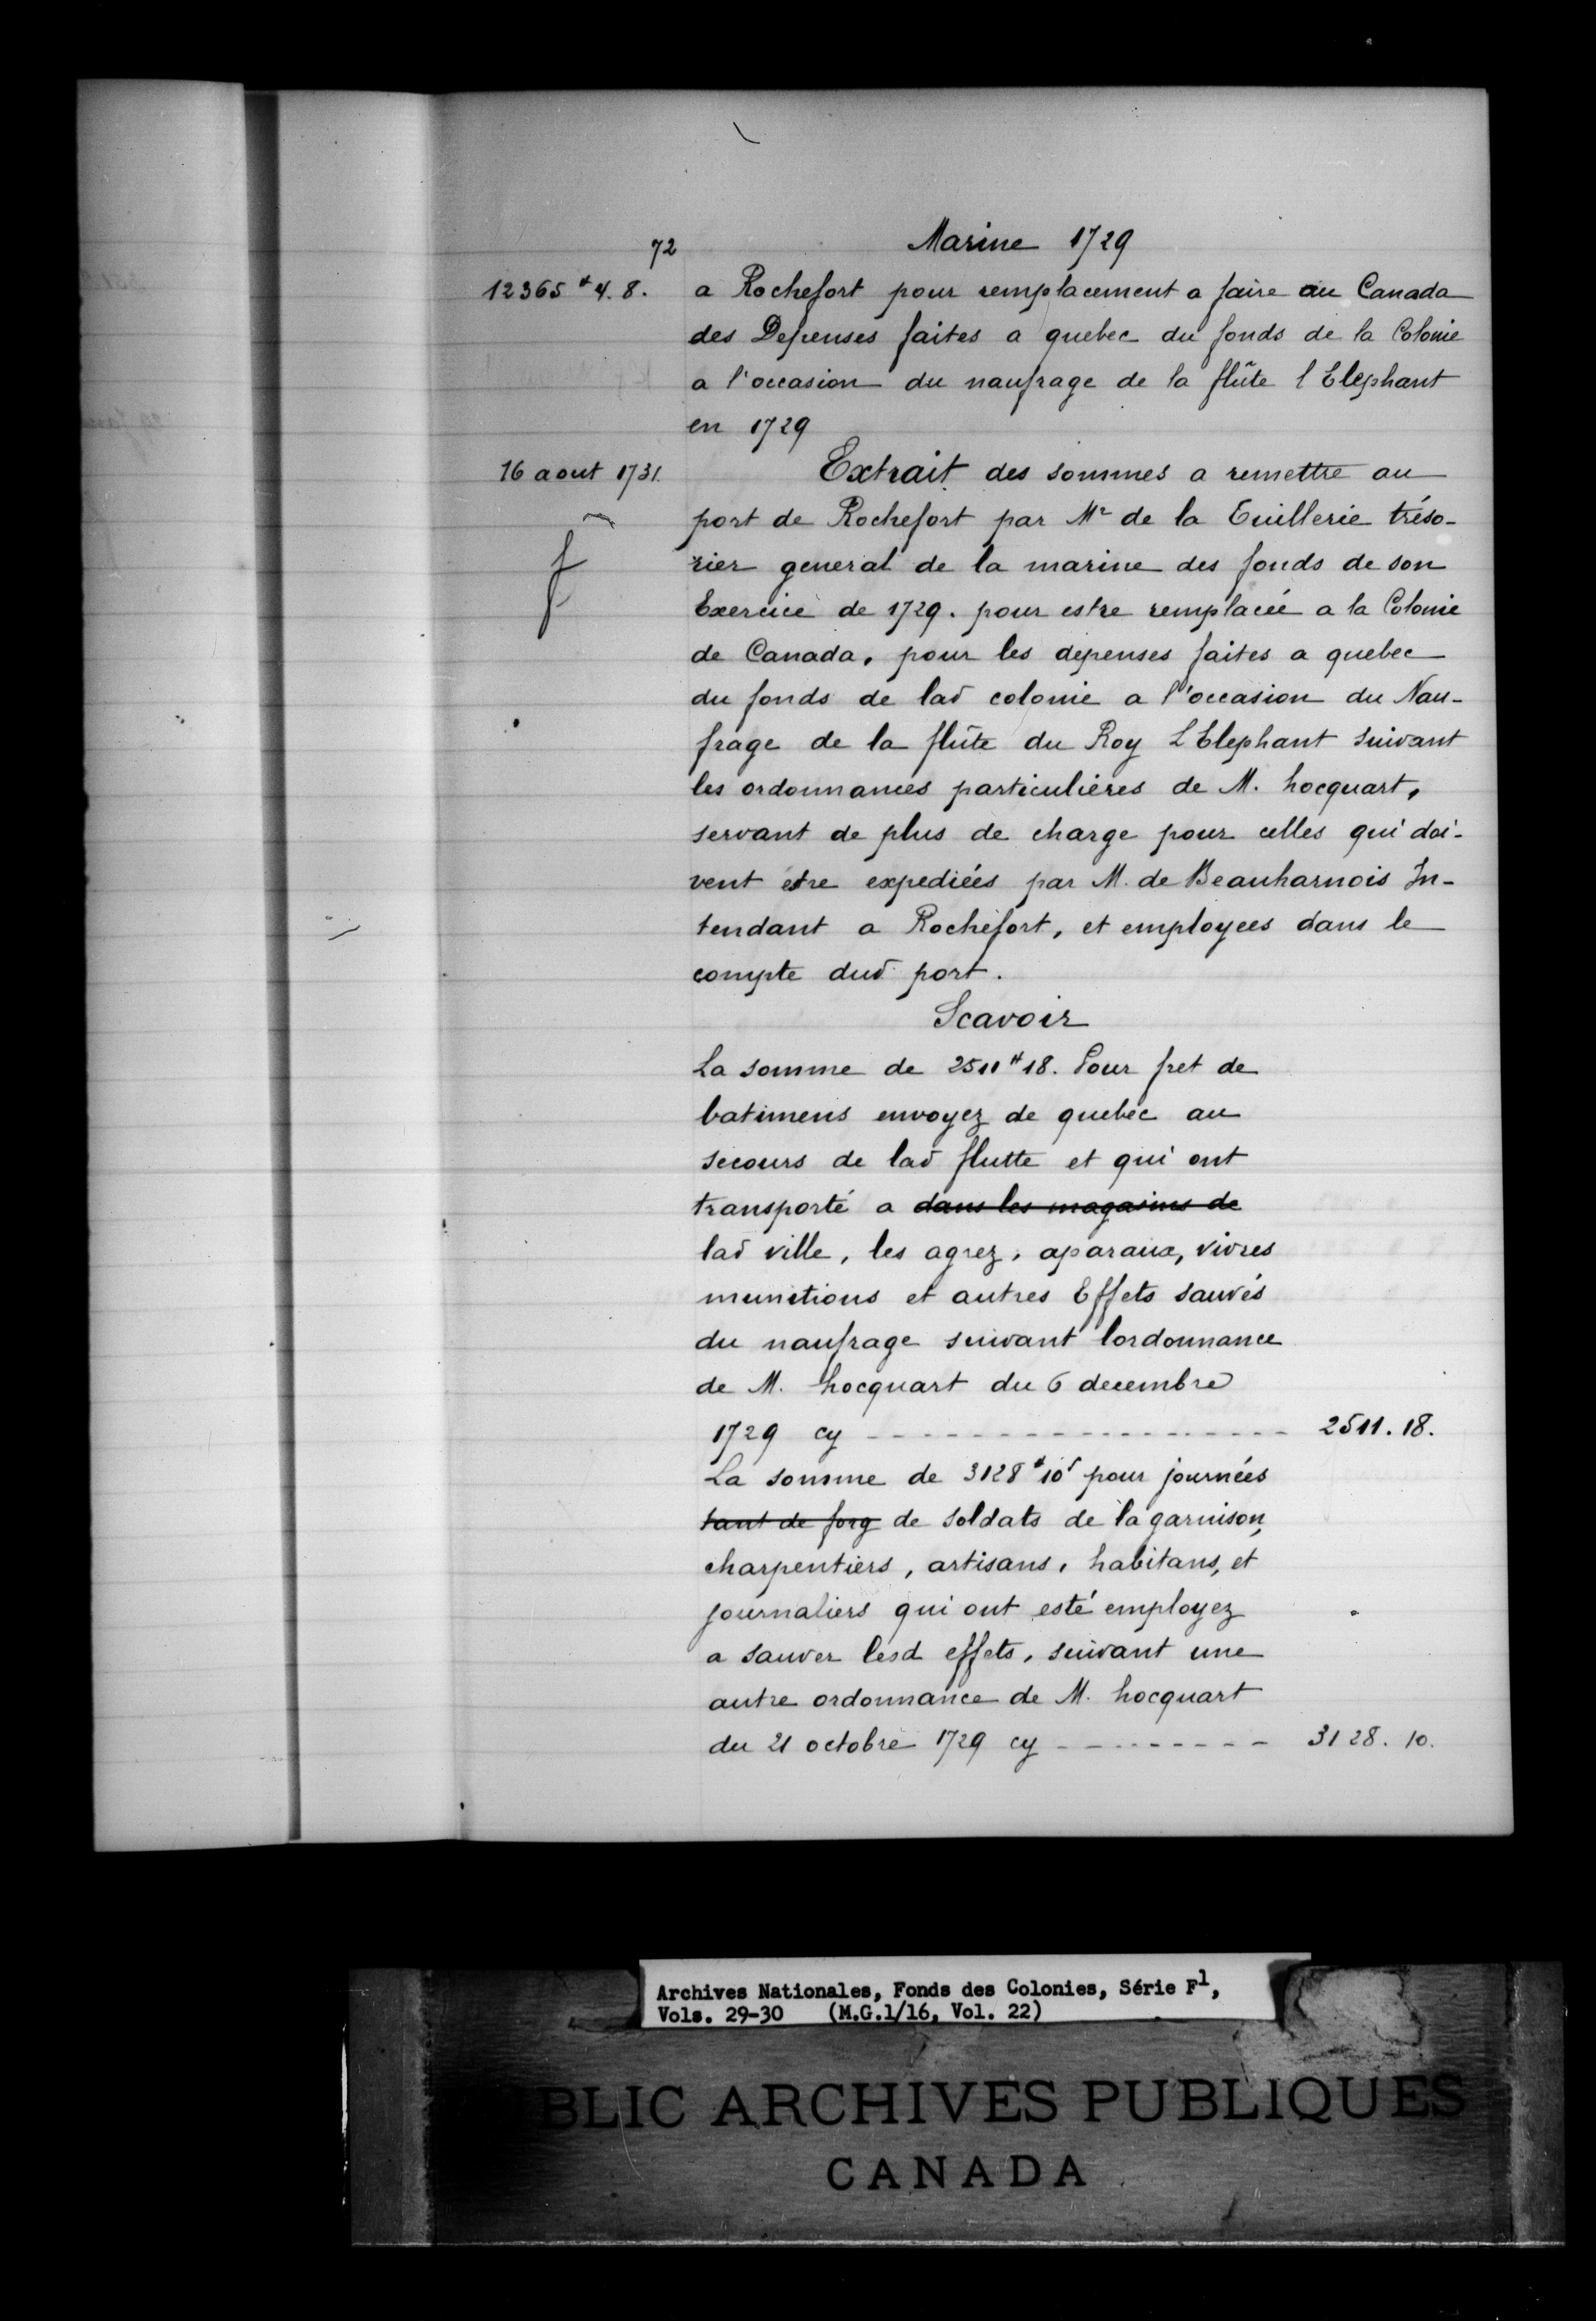 72 Marine 1729
12365 # 4. 8. a Rochefort pour remplacement a faire au Canada
des Depenses faites a quebec du fonds de la Colonie
a l'occasion du naufrage de la flûte l Elephant
en 1729
16 aout 1731. Extrait des sommes a remettre au
port de Rochefort par Mr de la Tuillerie tréso-
rier general de la marine des fonds de son
Exercice de 1729. pour estre remplacée a la Colonie
de Canada, pour les depenses faites a quebec
du fonds de lad colonie a l'occasion du Nau-
frage de la flûte du Roy L Elephant suivant
les ordonnances particulières de M. hocquart,
servant de plus de charge pour celles qui doi-
vent etre expediées par M. de Beauharnois In-
tendant a Rochefort, et employees dans le
compte dud port.
Scavoir
La somme de 2511 # 18. Pour fret de
batimens envoyez de quebec au
secours de lad flutte et qui ont
transporté a dans les magasins de
lad ville, les agrez, aparaux, vivres
munitions et autres Effets sauvés
du naufrage suivant lordonnance
de M. hocquart du 6 decembre
1729 cy - - - - - - - - - - - - - - - - - - 2511. 18.
La somme de 3128 # 10 s pour journées
tant de forg de soldats de la garnison,
charpentiers, artisans, habitans, et
journaliers qui ont esté employez
a sauver lesd effets, suivant une
autre ordonnance de M. hocquart
du 21 octobre 1729 cy - - - - - - - - - 3128. 10.
Archives Nationales, Fonds des Colonies, Série F1,
Vols. 29-30 (M.G.1/16, Vol. 22)
BLIC ARCHIVES PUBLIQUES
CANADA